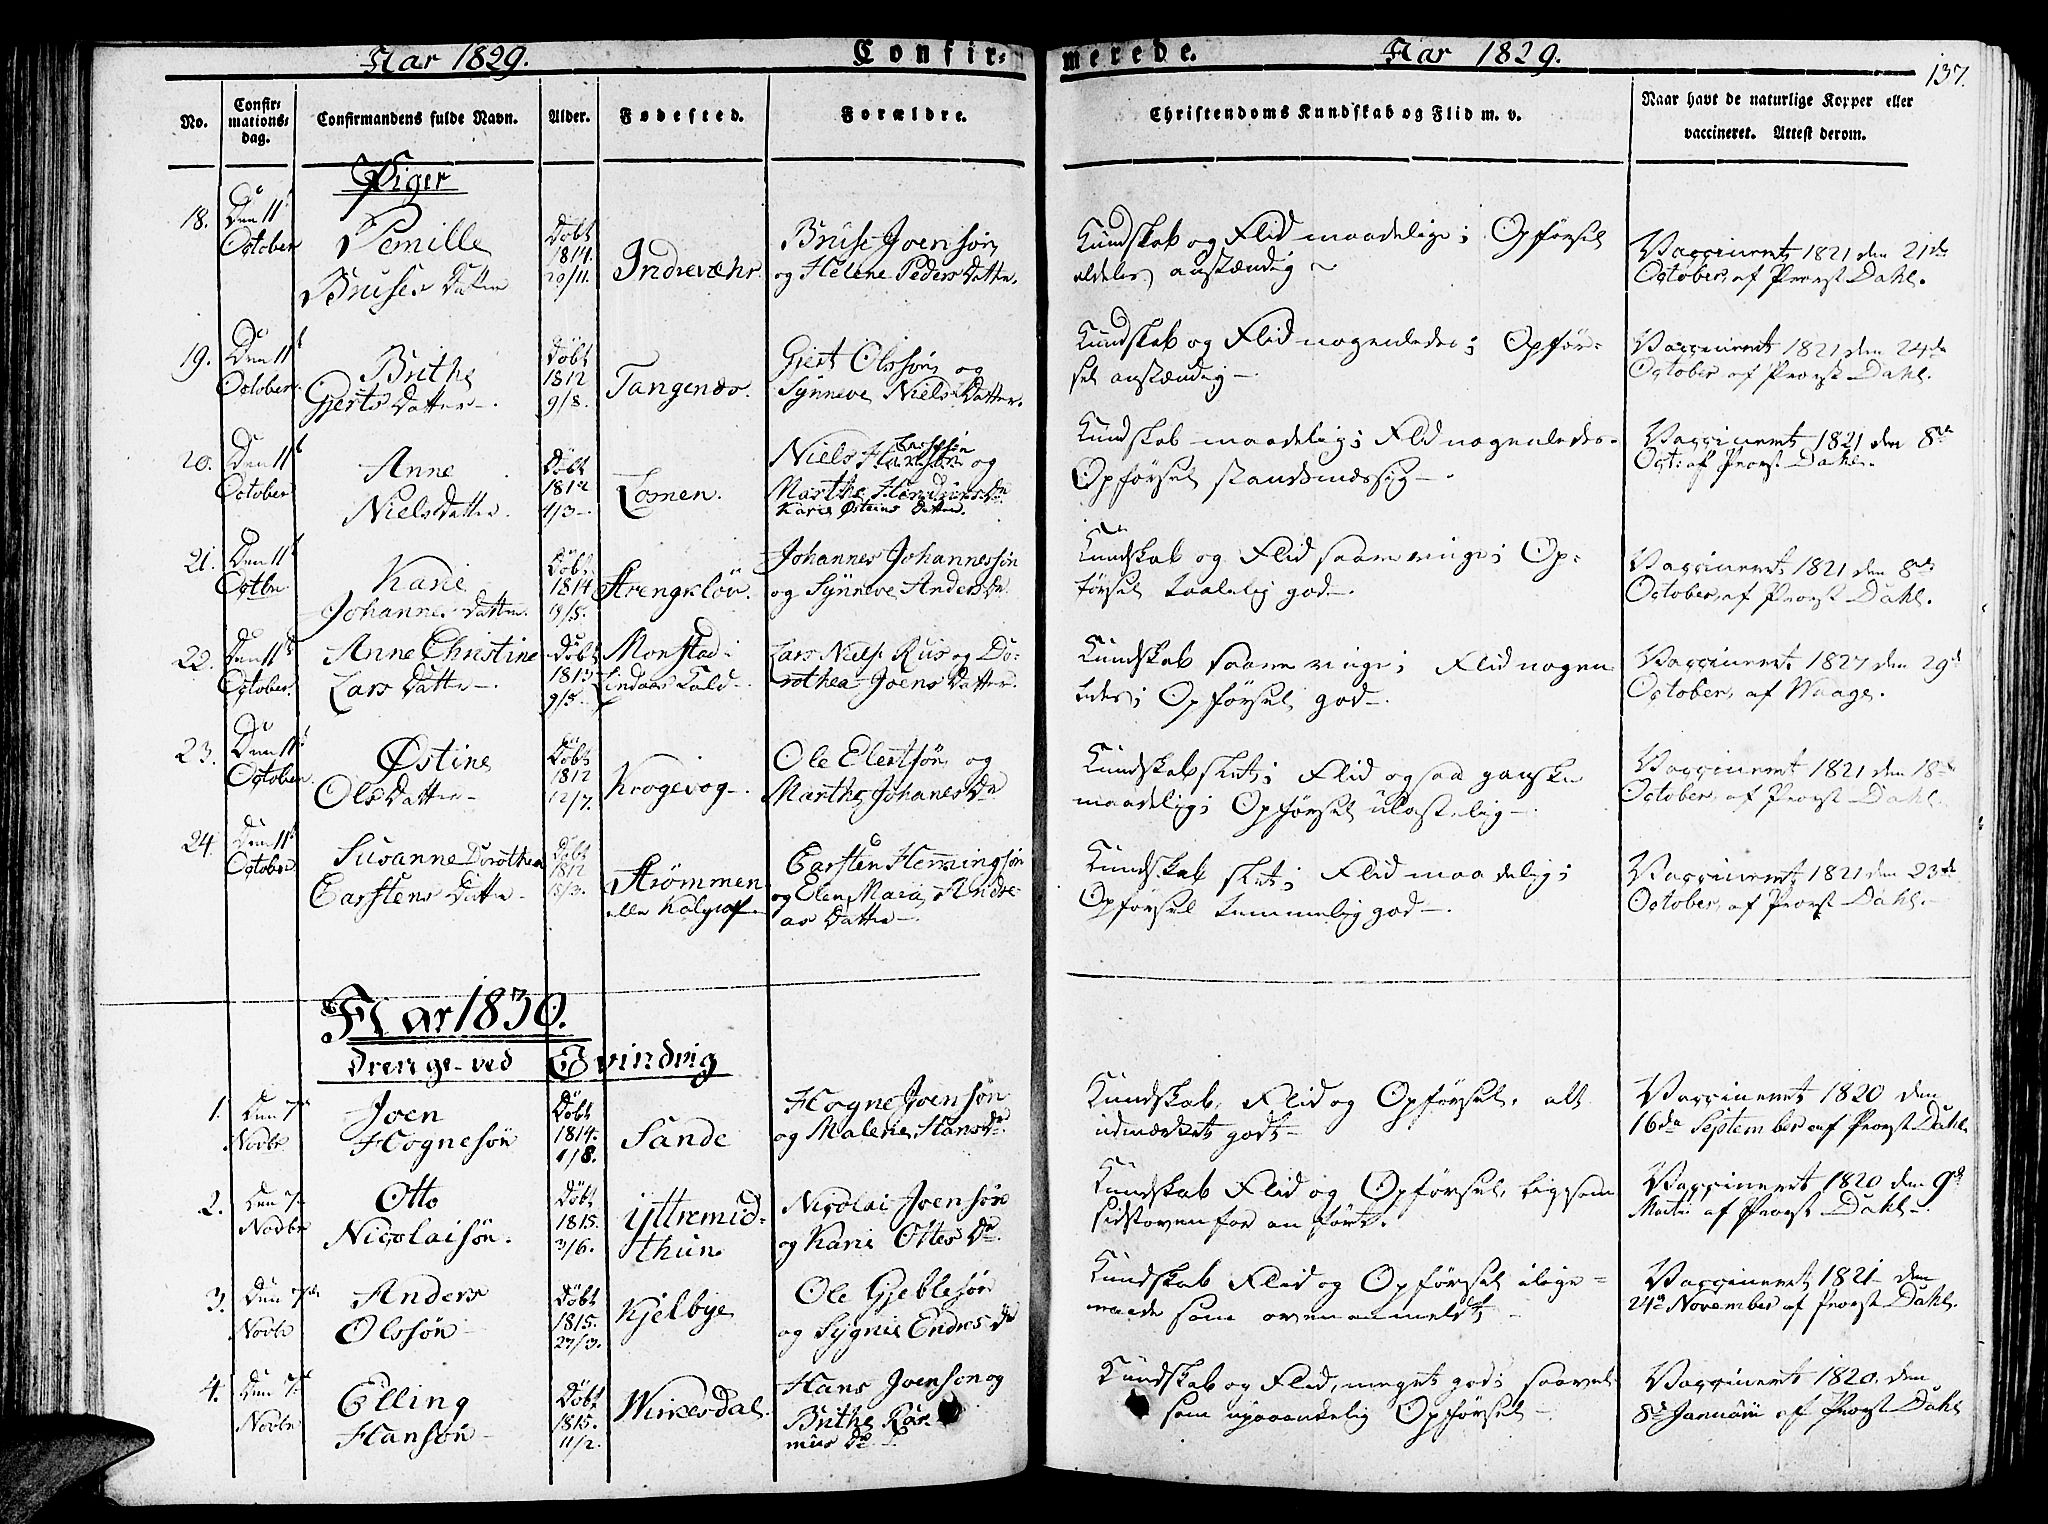 Aar 1829.
Confir=
merede.
Aar 1829.
137.
No.
Confir=
mations=
dag.
Confirmandens fulde Navn.
Alder.
Fødested.
Forældre.
Christendoms Kundskab og Flid m. v.
Naar havt de naturlige Kopper eller
vaccineret. Attest derom.
Piger
18.
Den 11t
October
Pernille
Bruses Datter
Døbt
1814.
20/11.
Indrevæhr.
Bruse Joensøn
og Helene Peders Datter.
Kundskab og Flid maadelige; Opførsel
aldeles anstændig
Vaccineret 1821 den 21de
October, af Provst Dahl.
19.
Den 11t
October.
Brithe
Gjerts Datter
Døbt
1812
9/8.
Tangenæs.
Gjert Olssøn og
Synneve Niels Datter.
Kundskab og Flid nogenledes; Opfør=
sel anstændig
Vaccineret 1821 den 24de
October af Provst Dahl.
20.
Den 11t
October
Anne
Niels Datter.
Døbt
4/3
Losnen.
Niels
og
Marthe
Karie Østeins Datter.
Kundskab maadelig; Flid nogenledes.
Opførsel standsmæssig
Vaccineret 1821 den 8de
Oct: af Provst Dahl.
21.
Den 11t
Octbr
Karie
Johannes Datter
Døbt
1814
19/5.
Johannes Johannessøn
og Synneve Anders Dr.
Kundskab og Flid saare ringe; Op=
førsel taalelig god.
Vaccineret 1821 den 8de
October, af Provst Dahl.
22.
Den 11t
October.
Anne Christine
Lars Datter
Døbt
1813
9/5.
Monstad
Lindaas Kald
Lars Niels. Riis og Do=
rothea Joens Datter.
Kundskab saare ringe; Flid nogen
ledes; Opførsel god.
Vaccineret 1827 den 29d
October, af Waage.
23.
Den 11t
October.
Østine
Ols Datter
Døbt
1812
12/7.
Krogevog
Ole Elertsøn og
Marthe Johanes Dr
Kundskab slet; Flid ogsaa ganske
maadelig; Opførsel ulastelig
Vaccineret 1821 den 18de
October, af Provst Dahl.
24.
Den 11t
October
Susanne Dorothea
Carstens Datter
Døbt
1812
Strømmen
eller
Carsten Hemingsøn
og Elen Maria Andre=
as Datter
Kundskab slet; Flid maadelig;
Opførsel temmelig god.
Vaccineret 1821 den 23de
October, af Provst Dahl.
Aar 1830.
Drenge ved Evindvig
1.
Den 7de
Novbr
Joen
Hognesøn
Døbt
1814.
1/8.
Sande
Hogne Joensøn
og Malene Hans Dr.
Kundskab, Flid og Opførsel, alt
udmærket godt
Vaccineret 1820 den
16de September af Provst Dahl.
2.
Den 7de
Novbr
Otto
Nicolaisøn.
Døbt
1815.
3/6.
Yttremid=
thun
Nicolai Joensøn
og Karie Ottes Dr.
Kundskab Flid og Opførsel, ligesom
sidst ovenfor anførte.
Vaccineret 1820 den 9d
Martii af Provst Dahl.
3.
Den 7de
Novbr
Anders
Olssøn
Døbt
1815.
27/3.
Kjelbye
Ole Gjeblesøn
og Sygnie Endres Dr
Kundskab Flid og Opførsel i lige=
maade som ovenanmeldt
Vaccineret 1821 den
24de November af Provst Dahl.
4.
Den 7de
Novbr
Elling
Hansøn
Døbt
1815.
11/2.
Wirkesdal.
Hans Joenson og
Brithe Ras
mus Dr.
Kundskab og Flid, meget god; saavel
som upaaankelig Opførsel
Vaccineret 1820. den
8de Januarii af Provst Dahl